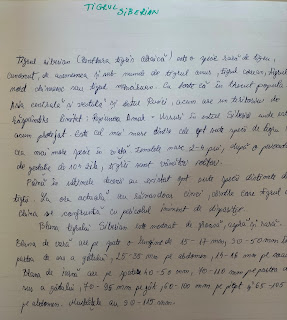 TIGRUL
SIBERIAN
Tigrul siberian (Panthera tigris altaica) este o specie rară de tigru,
cunoscut, de asemenea, și sub numele de tigrul amur, tigrul corean, tigrul
nord chinezesc sau tigrul manciurian. Cu toate că în trecut popula
Asia centrală și vestică și estul Rusiei, acum are un teritoriu de
răspândire limitat: Regiunea Amur - Ussuri în estul Siberiei unde este
acum protejat. Este cel mai mare dintre cele opt sub specii de tigru și
cea mai mare specie în viață. Femelele nasc 2-4 pui, după o perioadă
de gestație de 104 zile, tigrii sunt vânători solitari.
Până în ultimele decenii au existat opt sub specii distincte de
tigri. În ora actuală au rămas doar cinci, dintre care tigrul din
China se confruntă cu pericolul iminent de dispariție.
Blana tigrului Siberian este moderat de groasă, aspră și rară.
Blana de vară are pe spate o lungime de 15-17 mm, 30-50 mm în
partea de sus a gâtului, 25-35 mm pe abdomen, 14-16 mm pe coadă.
Blana de iarnă are pe spate 40-50 mm, 70-110 mm pe partea de
sus a gâtului, 70-95 mm pe gât, 60-100 mm pe piept și 65-105
pe abdomen. Mustățile au 90-115 mm.